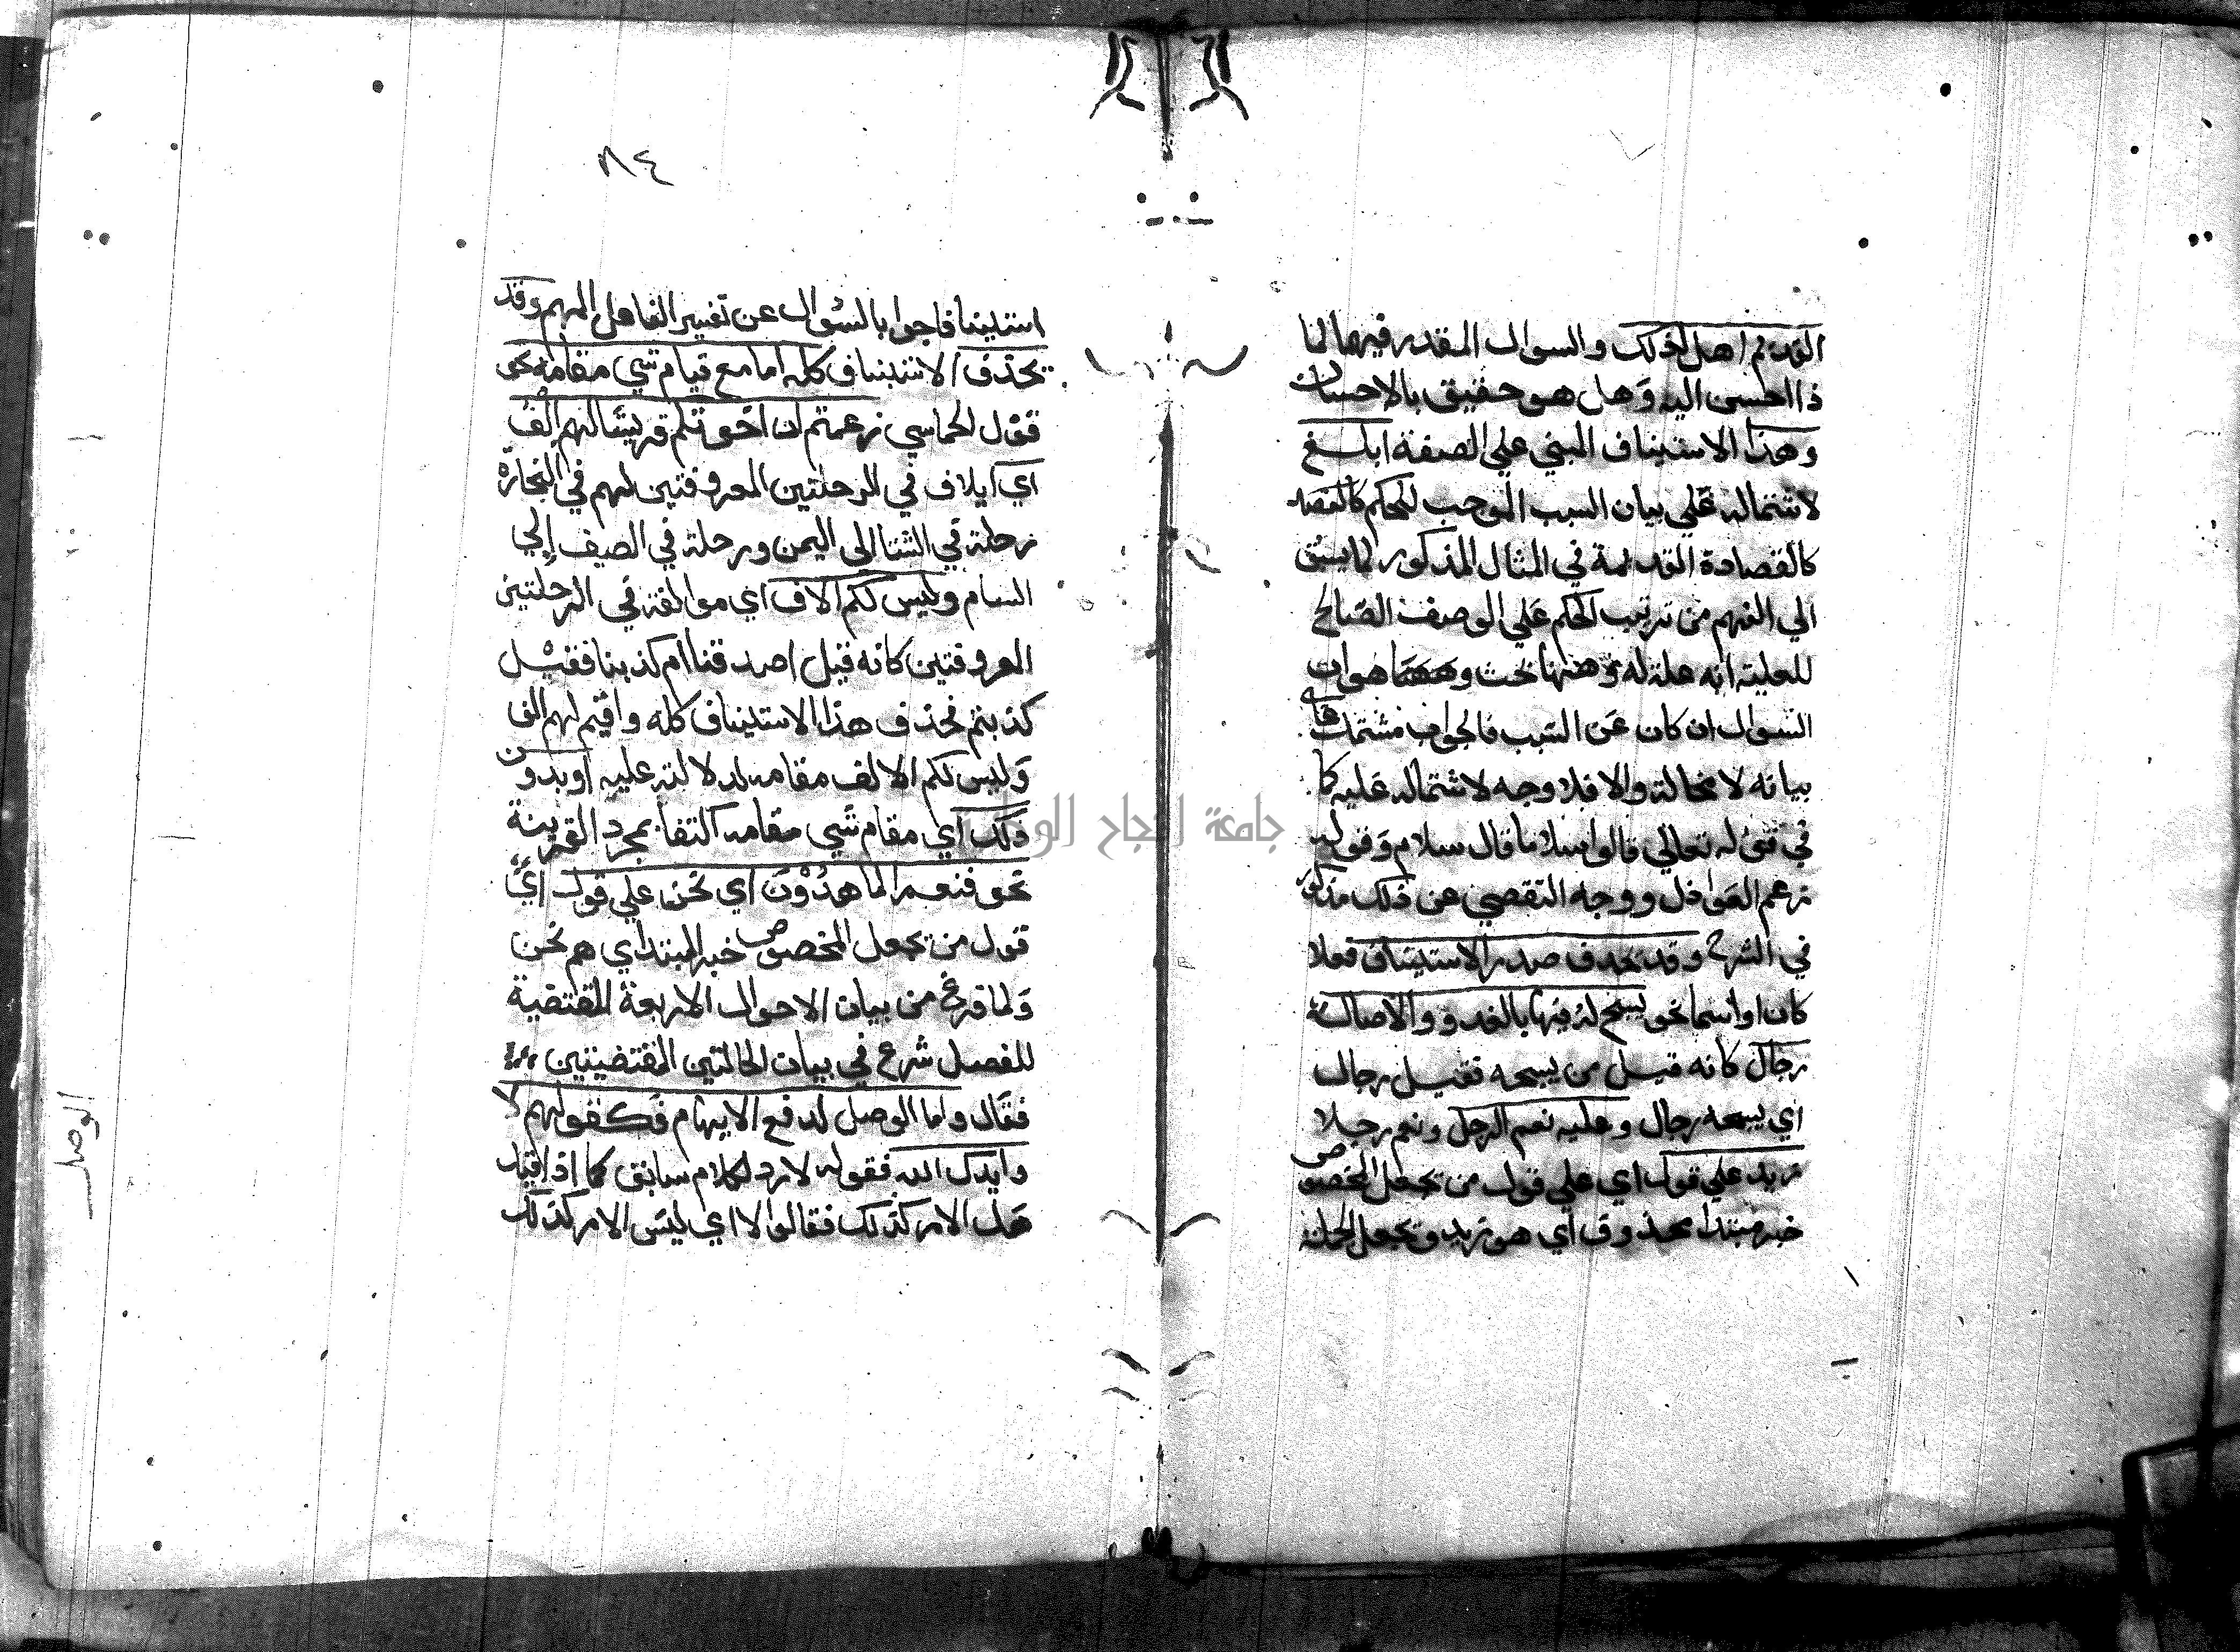 القديم اهل لذلك والسوال المقدر فيهما لما
ذا احسن اليه وهل هو حقيق بالاحسان
وهذا الاستيناف المبني علي الصفة ابلغ
لاشتماله علي بيان السبب الموجب للحكم
كالصداقة القديمة في المثال المذكور لما يسبق
الي الفهم من ترتيب الحكم علي الوصف الصالح
للعلية انه علة له وههنا بحث وهو ان
السوال ان كان عن السبب فالجواب مشتمل علي
بيانه لا محالة والا فلا وجه لاشتماله عليه كما
في قوله تعالي قالوا سلاما قال سلام وقوله
زعم العواذل ووجه التقصي عن ذلك مذكور
في الشرح وقد يحذف صدر الاستيناف فعلا
كان او اسما نحو يسبح له فيها بالغدو والاصال
رجال كانه قيل من يسبحه فقيل رجال
اي يسبحه رجال وعليه نعم الرجل ونعم رجلا
زيد علي قول اي علي قول من يجعل المخصوص
خبر مبتدا محذوف اي هو زيد ويجعل الجملة
٨٤
استينافا جوابا للسؤال عن تفسير الفاعل المبهم وقد
يحذف الاستيناف كله اما مع قيام شي مقامه نحو
قول الحماسي زعمتم ان اخوتكم قريش لهم الف
اي ايلاف في الرحلتين المعروفتين لهم في التجارة
رحلة في الشتا الى اليمن ورحلة في الصيف الي
الشام وليس لكم الاف اي موالفة في الرحلتين
المعروفتين كانه قيل اصدقنا ام كذبنا فقيل
كذبتم فحذف هذا الاستيناف كله واقيم لهم الف
وليس لكم الالف مقامه لدلالته عليه او بدون
ذلك اي مقام شي مقامه اكتفا بمجرد القرينة
نحو فنعم الماهدون اي نحن علي قول اي
قول من يجعل المخصوص خبر المبتدا اي هم نحن
ولما فرغ من بيان الاحوال الاربعة المقتضية
للفصل شرع في بيان الحالتين المقتضيتين
فقال واما الوصل لدفع الايهام فكقولهم لا
وايدك الله فقوله لا رد لكلام سابق كما اذا قيل
هل الامر كذلك فقالوا لا اي ليس الامر كذلك
الوصل
جامعة النجاح الوطنية